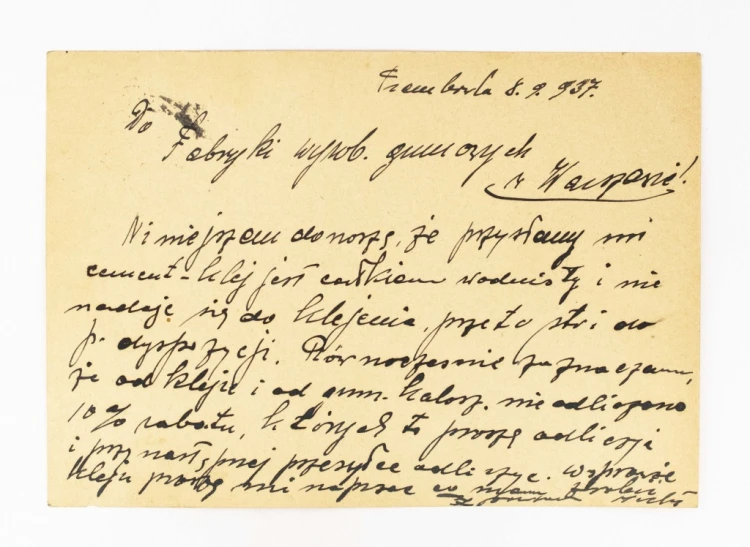 Trembowla 8. 9. 937.
Do
Fabryki wyrob. gumowych
w Warszawie!
Niniejszem donoszę, że przysłany mi
cement-klej jest całkiem wodnisty i nie
nadaje się do klejenia, przeto stoi do
p. dyspozycji. Równocześnie zaznaczam,
że od kleju i od gum. kalosz. nie odliczono
10% rabatu, których to proszę odliczyć
i przy następnej przesyłce odliczyć. W sprawie
kleju proszę mi napisać co mam zrobić